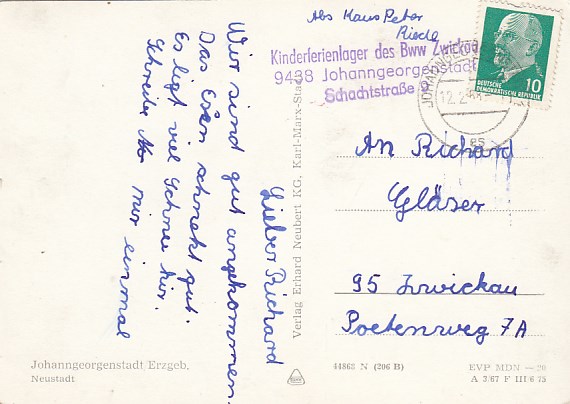 Abs Klaus Peter
Riede
Kinderferienlager des Bww Zwickau
9438 Johanngeorgenstadt
Schachtstraße
DEUTSCHE
DEMOKRATISCHE REPUBLIK
10
12.2
Lieber Richard
Wir sind gut angekommen.
Das Essen schmekt gut.
Es ligt viel Schnee hir.
Schreibe mir einmal
Verlag Erhard Neubert KG, Karl-Marx-Stadt
An Richard
Gläser
95 Zwickau
Poetenweg 7A
Johanngeorgenstadt Erzgeb.
Neustadt
44863 N (206 B)
EVP MDN — 20
A 2/67 F III 6 75